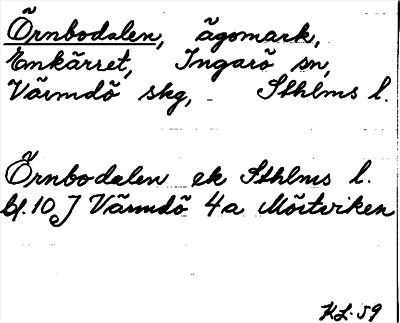 Örnbodalen, ägomark,
Emkärret, Ingarö sn,
Värmdö skg, Sthlms l.
Örnbodalen ek Sthlms l.
bl. 10 J Värmdö 4a Mörtviken
KL. 59